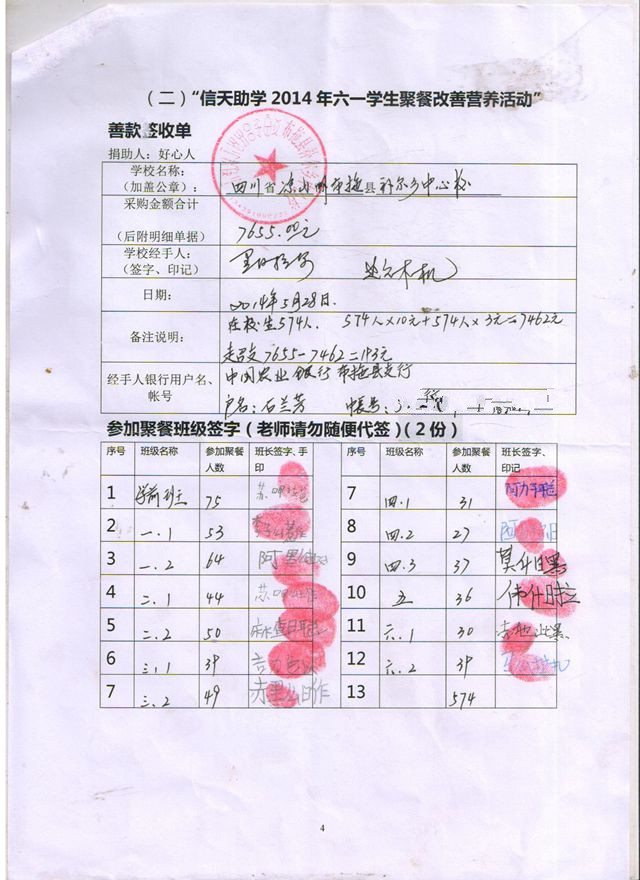 （二）“信天助学 2014 年六一学生聚餐改善营养活动”
善款签收单
捐助人：好心人
学校名称：
（加盖公章）：
四川省凉山州布拖县补尔乡中心校
采购金额合计
（后附明细单据）
7655.00元
学校经手人：
（签字、印记）
日期：
2014年5月28日.
备注说明：
在校生574人. 574人×10元+574人×3元=7462元
超支7655-7462=193元
经手人银行用户名、
帐号
中国农业银行布拖县支行
户名：石兰芳 帐号：
参加聚餐班级签字（老师请勿随便代签）（2 份）
序号 班级名称 参加聚餐人数 班长签字、手印
1 学前班 75
2 一.1 53
3 一.2 64
4 二.1 44
5 二.2 50
6 三.1 39
7 三.2 49
序号 班级名称 参加聚餐人数 班长签字、印记
7 四.1 31
8 四.2 27
9 四.3 37 莫什日黑
10 五 36
11 六.1 30
12 六.2 39
13 574
4